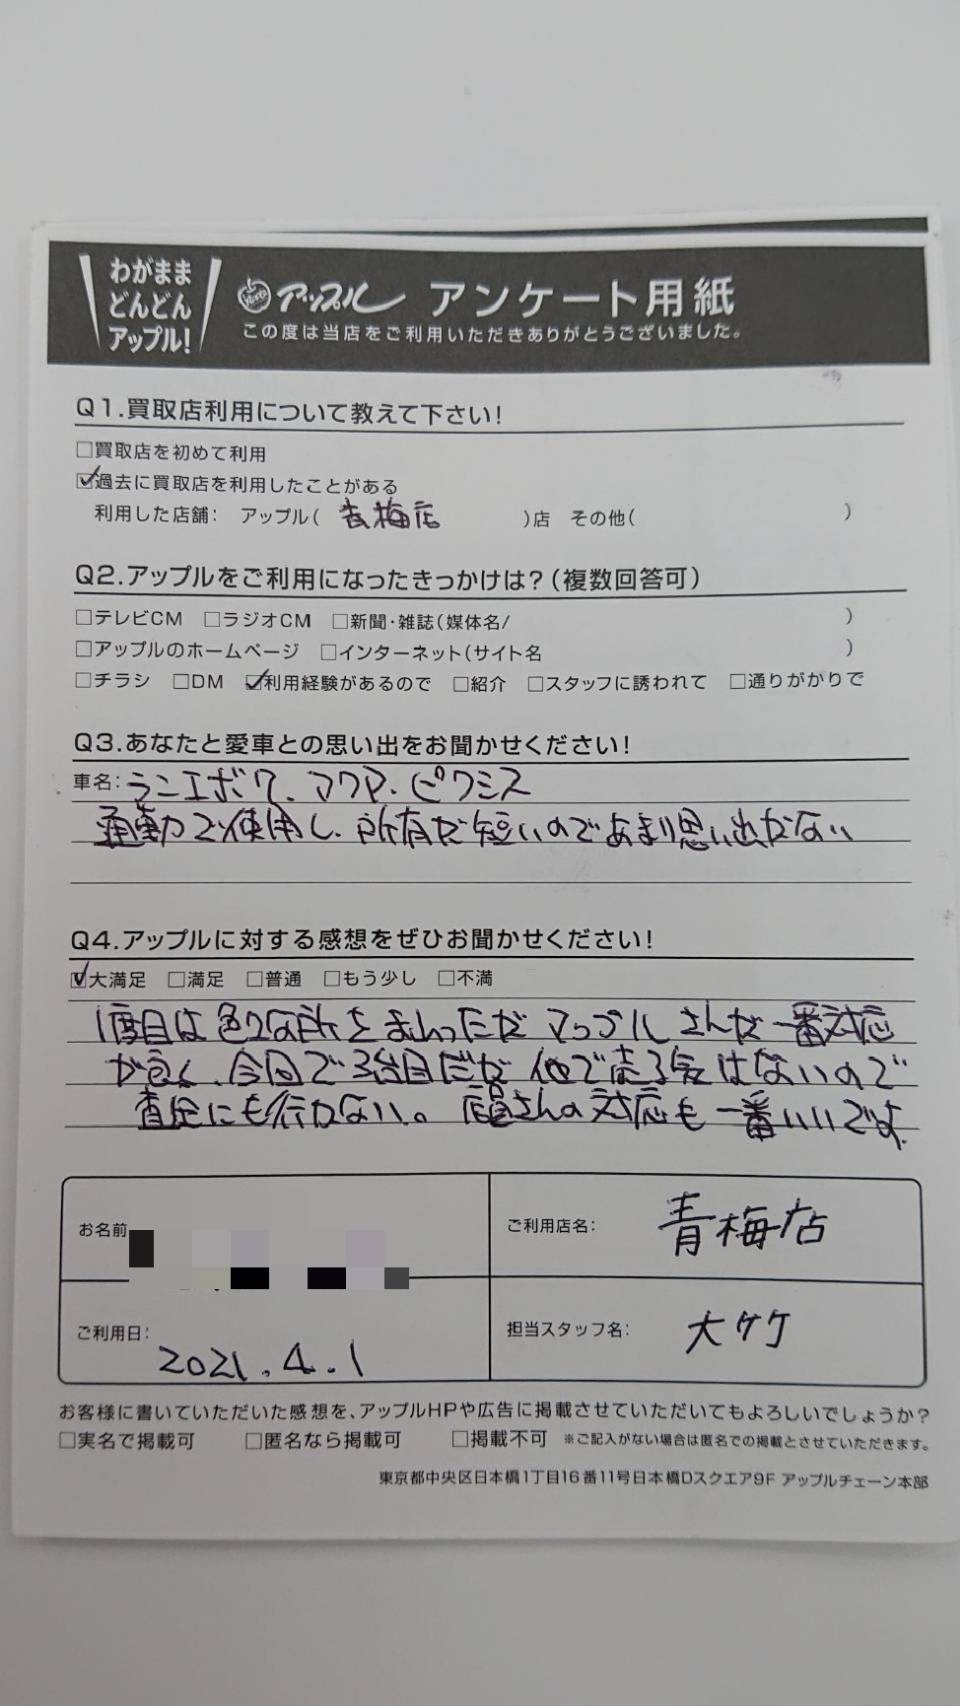 わがまま
どんどん
アップル!
アップル アンケート用紙
この度は当店をご利用いただきありがとうございました。
Q1.買取店利用について教えて下さい!
□買取店を初めて利用
☑過去に買取店を利用したことがある
利用した店舗: アップル( 青梅店 )店 その他( )
Q2.アップルをご利用になったきっかけは?(複数回答可)
□テレビCM □ラジオCM □新聞・雑誌(媒体名/ )
□アップルのホームページ □インターネット(サイト名 )
□チラシ □DM ☑利用経験があるので □紹介 □スタッフに誘われて □通りがかりで
Q3.あなたと愛車との思い出をお聞かせください!
車名:ランエボ7、アクア、ピクシス
通勤で使用し、所有が短いのであまり思い出がない
Q4.アップルに対する感想をぜひお聞かせください!
☑大満足 □満足 □普通 □もう少し □不満
1度目は色々な所をまわったがアップルさんが一番対応
が良く、今回で3台目だが他で売る気はないので
査定にも行かない。店員さんの対応も一番いいですよ
お名前
ご利用店名: 青梅店
ご利用日: 2021.4.1
担当スタッフ名: 大竹
お客様に書いていただいた感想を、アップルHPや広告に掲載させていただいてもよろしいでしょうか?
□実名で掲載可 □匿名なら掲載可 □掲載不可 ※ご記入がない場合は匿名での掲載とさせていただきます。
東京都中央区日本橋1丁目16番11号日本橋Dスクエア9F アップルチェーン本部